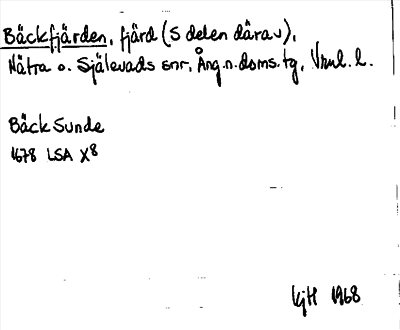 Bäckfjärden, fjärd (S delen därav),
Nätra o. Själevads snr, Ång.n.doms.tg, Vnul. l.
Bäck Sunde
1678 LSA X8
KjH 1968